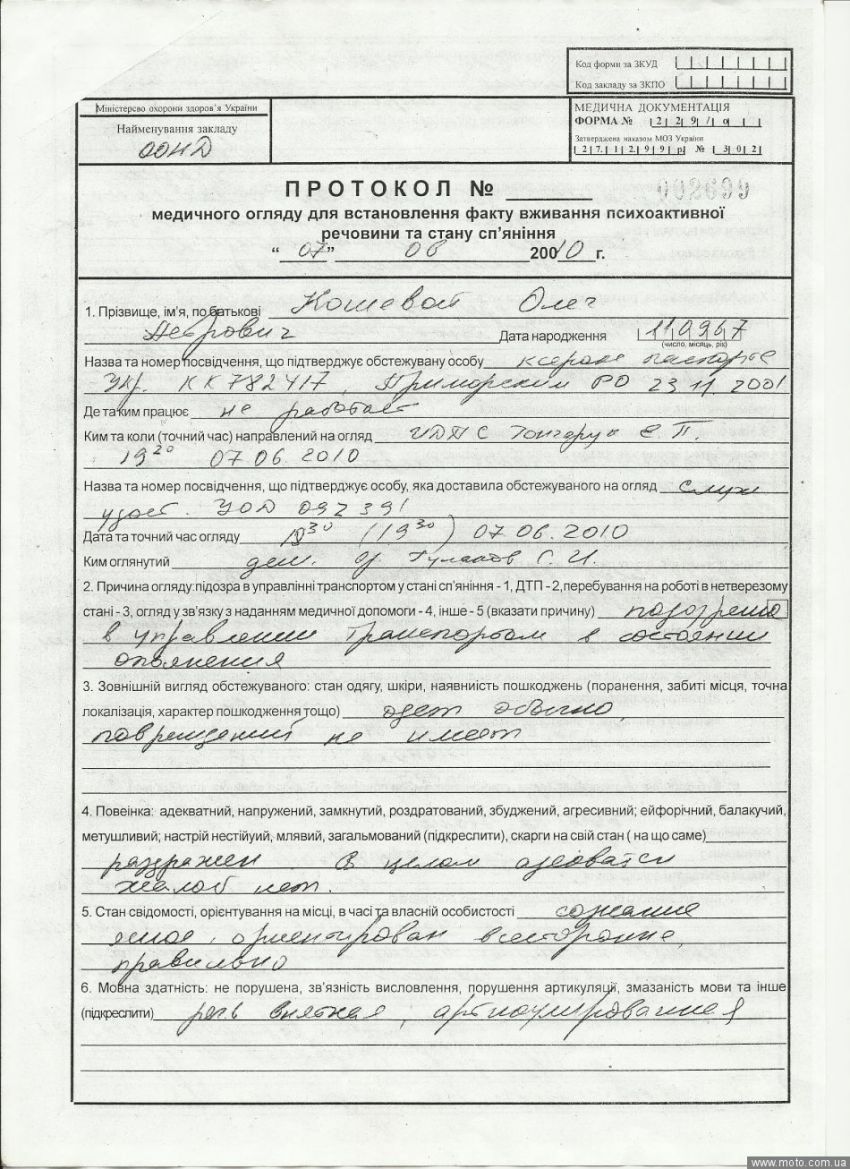 Код форми за ЗКУД
Код закладу за ЗКПО
Міністерсво охорони здоров'я України
Найменування закладу
ООНД
МЕДИЧНА ДОКУМЕНТАЦІЯ
ФОРМА № 2 2 9 / о
Затверджена наказом МОЗ України
2 7. 1 2. 9 9 р № 3 0 2
ПРОТОКОЛ №
002699
медичного огляду для встановлення факту вживання психоактивної
речовини та стану сп'яніння
“07” 06 2010 г.
1. Прізвище, ім'я, по батькові Кошевой Олег
Петрович Дата народження 110967
(число, місяць, рік)
Назва та номер посвідчення, що підтверджує обстежувану особу ксерокс паспорта
Укр. КК 782417, Приморским РО 23 11. 2001
Де таким працює не работает
Ким та коли (точний час) направлений на огляд ИДПС Гончарук Е. П.
19 20 07 06. 2010
Назва та номер посвідчення, що підтверджує особу, яка доставила обстежуваного на огляд служ
удост. УОД 092391
Дата та точний час огляду 19 30 (19 30) 07 06. 2010
Ким оглянутий С. И.
2. Причина огляду: підозра в управлінні транспортом у стані сп'яніння - 1, ДТП - 2, перебування на роботі в нетверезому
стані - 3, огляд у зв'язку з наданням медичної допомоги - 4, інше - 5 (вказати причину) подозрение
в управлении транспортом в состоянии
опьянения
3. Зовнішній вигляд обстежуваного: стан одягу, шкіри, наявнисть пошкоджень (поранення, забиті місця, точна
локалізація, характер пошкодження тощо) одет обычно,
повреждений не имеет
4. Повеінка: адекватний, напружений, замкнутий, роздратований, збуджений, агресивний; ейфорічний, балакучий,
метушливий; настрій нестійуий, млявий, загальмований (підкреслити), скарги на свій стан ( на що саме)
раздражен. В целом адекватен
жалоб нет.
5. Стан свідомості, орієнтування на місці, в часі та власній особистості сознание
ясное, ориентирован всесторонне,
правильно
6. Мовна здатність: не порушена, зв'язність висловлення, порушення артикуляції, змазаність мови та інше
(підкреслити) речь внятная, артикулированная
www.moto.com.ua